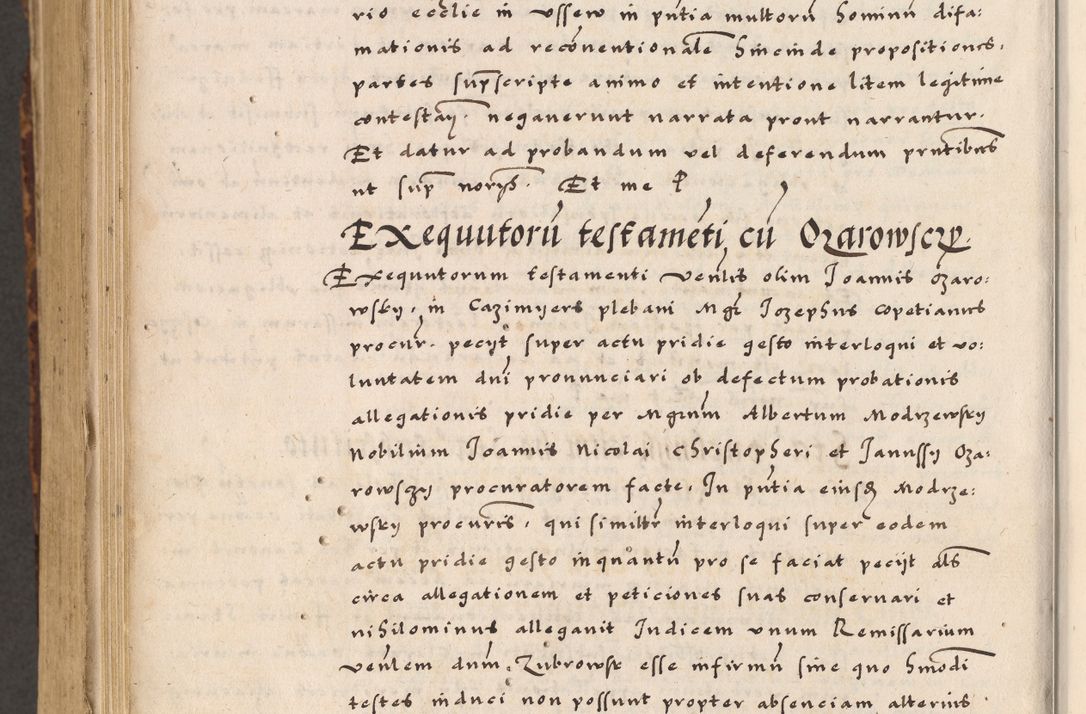 rio ecclie in Ussew in pntia multorum hominum difa:
mationis ad reconventionale hincinde propositiones,
partes supscripte animo et intentione litem legitime
contestan. negaverunt narrata prout narrantur.
Et datur ad probandum vel deferendum prntibus
ut sup noriis. Et me P
Exequutorũ testamẽti cũ Ozarowsczy
Exequutorum testamenti venlis olim Joannis Ozaro:
wsky, in Cazimyers plebani Mgr Jozephus Copetianus
procur. pecyt super actu pridie gesto interloqui et vo:
luntatem dni pronunciari ob defectum probationis
allegationis pridie per Mgrum Albertum Modrzewsky
Nobilium Joannis Nicolai Christopheri et Janussy Oza:
rowsczy procuratorem facte. In pntia eiusd Modrze:
wsky procuris, qui similtr interloqui super eodem
actu pridie gesto inquantũ pro se faciat pecyt als
circa allegationem et peticiones suas conservari et
nihilominus allegavit Judicem unum Remissarium
venlem dum. Zubrowsk esse infirmũ sine quo hmodi
testes induci non possunt propter absenciam alterius.